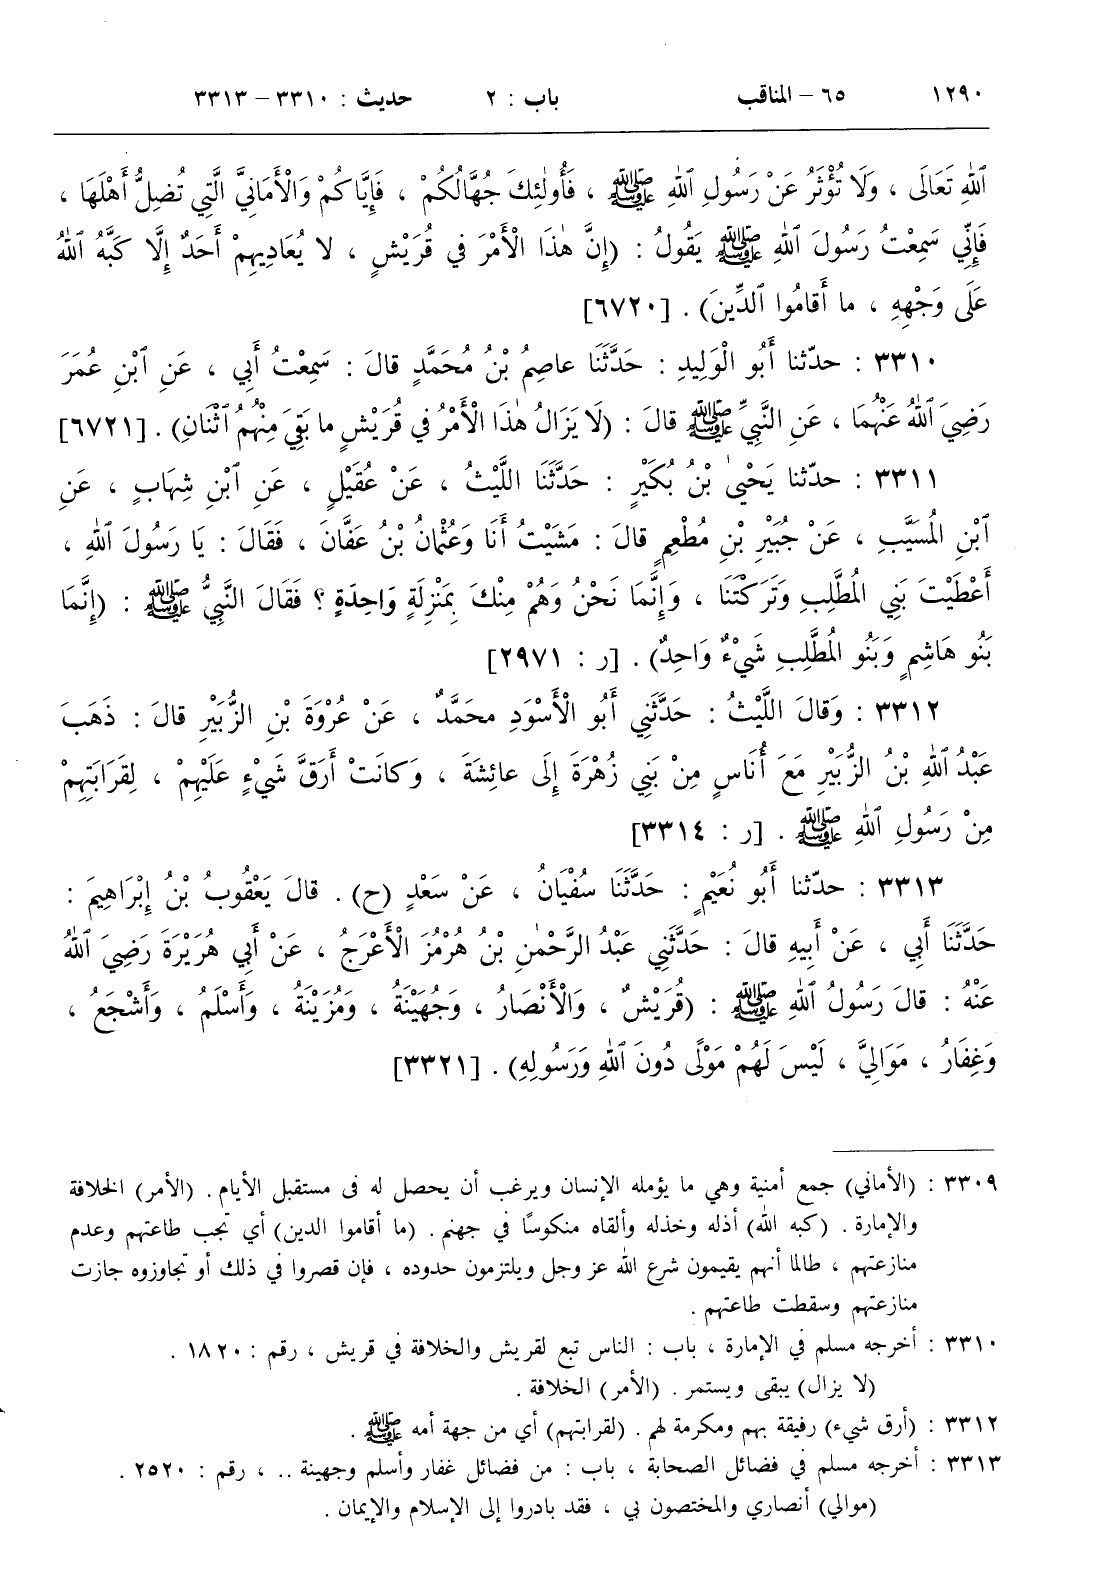 ١٢٩٠ ٦٥ – المناقب باب : ٢ حديث : ٣٣١٠ – ٣٣١٣
اللهِ تَعَالَى ، وَلَا تُؤْثَرُ عَنْ رَسُولِ اللهِ ﷺ ، فَأُولٰئِكَ جُهَّالُكُمْ ، فَإِيَّاكُمْ وَالْأَمَانِيَّ الَّتِي تُضِلُّ أَهْلَهَا ،
فَإِنِّي سَمِعْتُ رَسُولَ اللهِ ﷺ يَقُولُ : (إِنَّ هٰذَا الْأَمْرَ فِي قُرَيْشٍ ، لا يُعَادِيهِمْ أَحَدٌ إِلَّا كَبَّهُ اللهُ
عَلَى وَجْهِهِ ، ما أَقامُوا الدِّينَ) . [٦٧٢٠]
٣٣١٠ : حدّثنا أَبُو الْوَلِيدِ : حَدَّثَنَا عاصِمُ بْنُ مُحَمَّدٍ قالَ : سَمِعْتُ أَبِي ، عَنِ ٱبْنِ عُمَرَ
رَضِيَ اللهُ عَنْهُمَا ، عَنِ النَّبِيِّ ﷺ قالَ : (لَا يَزَالُ هٰذَا الْأَمْرُ فِي قُرَيْشٍ ما بَقِيَ مِنْهُمُ ٱثْنَانِ) . [٦٧٢١]
٣٣١١ : حدّثنا يَحْيىٰ بْنُ بُكَيْرٍ : حَدَّثَنَا اللَّيْثُ ، عَنْ عُقَيْلٍ ، عَنِ ٱبْنِ شِهَابٍ ، عَنِ
ٱبْنِ الْمُسَيَّبِ ، عَنْ جُبَيْرِ بْنِ مُطْعِمٍ قالَ : مَشَيْتُ أَنَا وَعُثْمانُ بْنُ عَفَّانَ ، فَقَالَ : يَا رَسُولَ اللهِ ،
أَعْطَيْتَ بَنِي الْمُطَّلِبِ وَتَرَكْتَنَا ، وَإِنَّمَا نَحْنُ وَهُمْ مِنْكَ بِمَنْزِلَةٍ وَاحِدَةٍ ؟ فَقَالَ النَّبِيُّ ﷺ : (إِنَّمَا
بَنُو هَاشِمٍ وَبَنُو الْمُطَّلِبِ شَيْءٌ وَاحِدٌ) . [ر : ٢٩٧١]
٣٣١٢ : وَقالَ اللَّيْثُ : حَدَّثَنِي أَبُو الْأَسْوَدِ محَمَّدٌ ، عَنْ عُرْوَةَ بْنِ الزُّبَيْرِ قالَ : ذَهَبَ
عَبْدُ اللهِ بْنُ الزُّبَيْرِ مَعَ أُنَاسٍ مِنْ بَنِي زُهْرَةَ إِلَى عائِشَةَ ، وَكانَتْ أَرَقَّ شَيْءٍ عَلَيْهِمْ ، لِقَرَابَتِهِمْ
مِنْ رَسُولِ اللهِ ﷺ . [ر : ٣٣١٤]
٣٣١٣ : حدّثنا أَبُو نُعَيْمٍ : حَدَّثَنَا سُفْيَانُ ، عَنْ سَعْدٍ (ح) . قالَ يَعْقُوبُ بْنُ إِبْرَاهِيمَ :
حَدَّثَنَا أَبِي ، عَنْ أَبِيهِ قالَ : حَدَّثَنِي عَبْدُ الرَّحْمٰنِ بْنُ هُرْمُزَ الْأَعْرَجُ ، عَنْ أَبِي هُرَيْرَةَ رَضِيَ اللهُ
عَنْهُ : قالَ رَسُولُ اللهِ ﷺ : (قُرَيْشٌ ، وَالْأَنْصَارُ ، وَجُهَيْنَةُ ، وَمُزَيْنَةُ ، وَأَسْلَمُ ، وَأَشْجَعُ ،
وَغِفَارُ ، مَوَالِيَّ ، لَيْسَ لَهُمْ مَوْلًى دُونَ اللهِ وَرَسُولِهِ) . [٣٣٢١]
٣٣٠٩ : (الأماني) جمع أمنية وهي ما يؤمله الإنسان ويرغب أن يحصل له فى مستقبل الأيام . (الأمر) الخلافة
والإمارة . (كبه الله) أذله وخذله وألقاه منكوسًا في جهنم . (ما أقاموا الدين) أي تجب طاعتهم وعدم
منازعتهم ، طالما أنهم يقيمون شرع الله عز وجل ويلتزمون حدوده ، فإن قصروا في ذلك أو تجاوزوه جازت
منازعتهم وسقطت طاعتهم .
٣٣١٠ : أخرجه مسلم في الإمارة ، باب : الناس تبع لقريش والخلافة في قريش ، رقم : ١٨٢٠ .
(لا يزال) يبقى ويستمر . (الأمر) الخلافة .
٣٣١٢ : (أرق شيء) رفيقة بهم ومكرمة لهم . (لقرابتهم) أي من جهة أمه ﷺ .
٣٣١٣ : أخرجه مسلم في فضائل الصحابة ، باب : من فضائل غفار وأسلم وجهينة .. ، رقم : ٢٥٢٠ .
(موالي) أنصاري والمختصون بي ، فقد بادروا إلى الإسلام والإيمان .